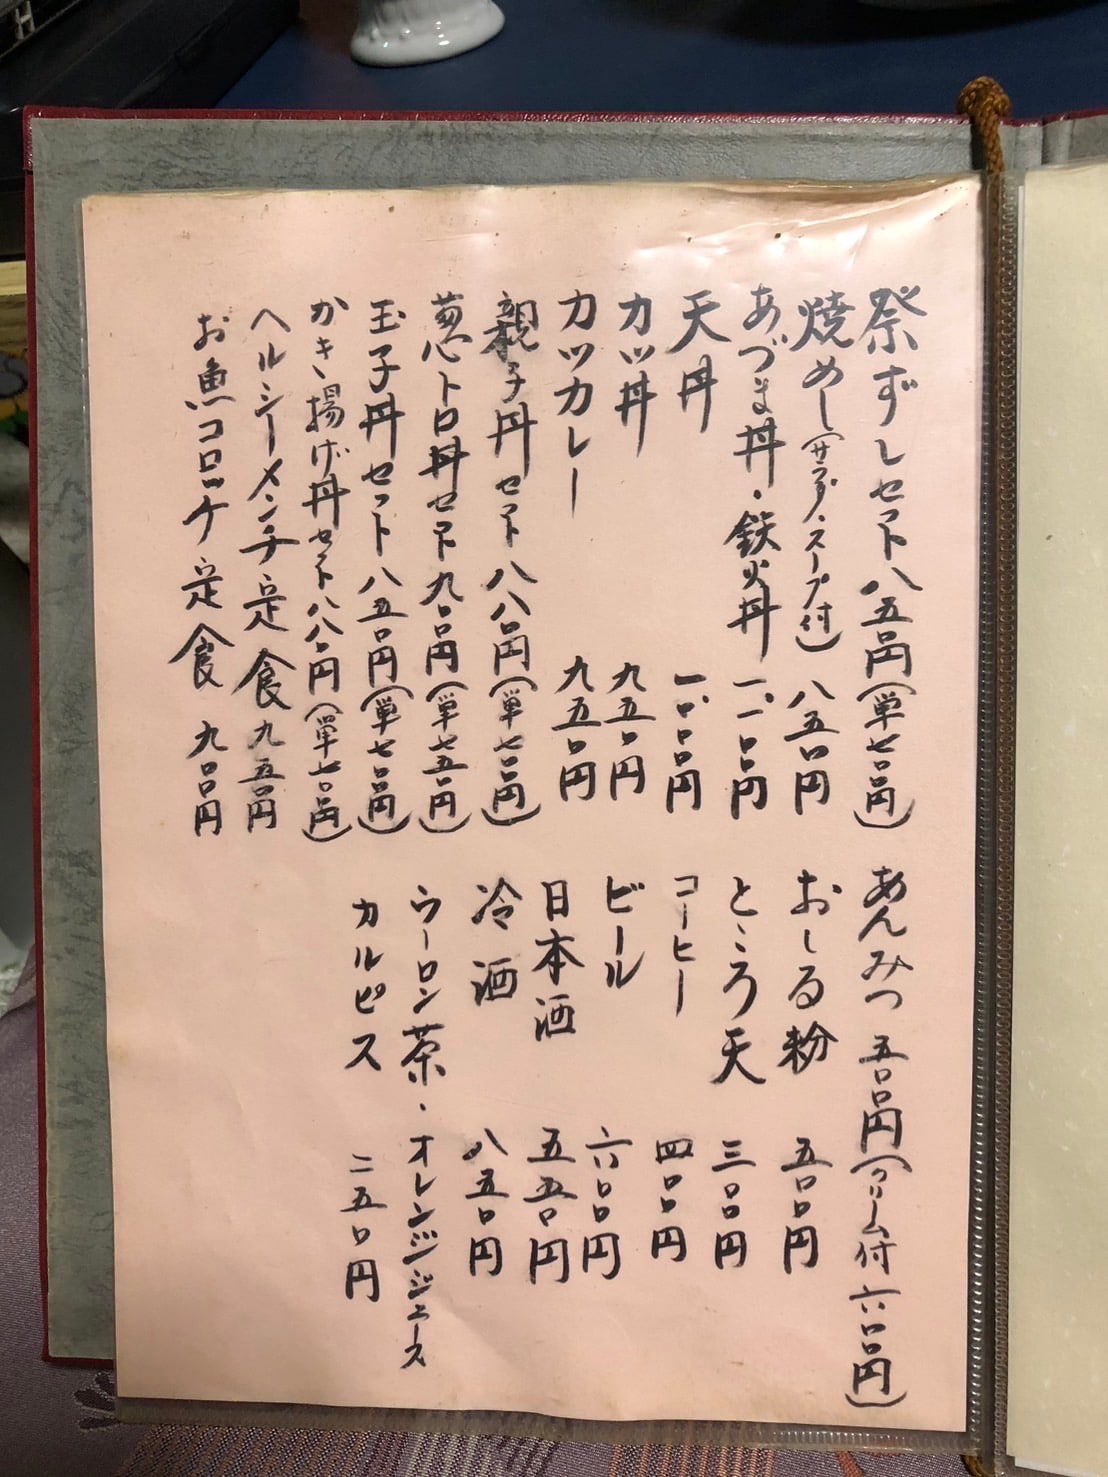 祭ずしセット 八五〇円(単七〇〇円)
焼めし(サラダ、スープ付) 八五〇円
あづま丼・鉄火丼 一、一〇〇円
天丼 一、〇〇〇円
カツ丼 九五〇円
カツカレー 九五〇円
親子丼セット 八八〇円(単七〇〇円)
葱トロ丼セット 九〇〇円(単七五〇円)
玉子丼セット 八五〇円(単七〇〇円)
かき揚げ丼セット 八八〇円(単七〇〇円)
ヘルシーメンチ定食 九五〇円
お魚コロッケ定食 九〇〇円
あんみつ 五〇〇円(クリーム付 六〇〇円)
おしる粉 五〇〇円
ところ天 三〇〇円
コーヒー 四〇〇円
ビール 六〇〇円
日本酒 五五〇円
冷酒 八五〇円
ウーロン茶・オレンジジュース
カルピス 二五〇円